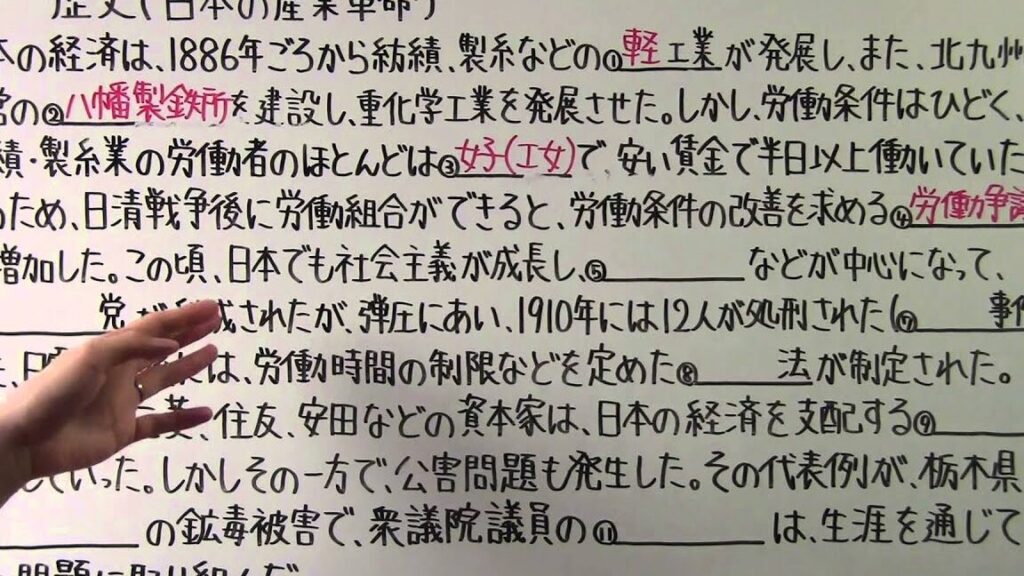 歴史(日本の産業革命)
本の経済は、1886年ごろから紡績、製糸などの①軽工業が発展し、また、北九州
営の②八幡製鉄所を建設し、重化学工業を発展させた。しかし、労働条件はひどく、
績・製糸業の労働者のほとんどは③女子(工女)で、安い賃金で半日以上働いていた
ため、日清戦争後に労働組合ができると、労働条件の改善を求める④労働争議
増加した。この頃、日本でも社会主義が成長し、⑤ などが中心になって、
党が 成されたが、弾圧にあい、1910年には12人が処刑された(⑦ 事件
、労働時間の制限などを定めた⑧ 法が制定された。
、住友、安田などの資本家は、日本の経済を支配する⑨
していった。しかしその一方で、公害問題も発生した。その代表例が、栃木県
の鉱毒被害で、衆議院議員の⑪ は、生涯を通じて
問題に取り組んだ